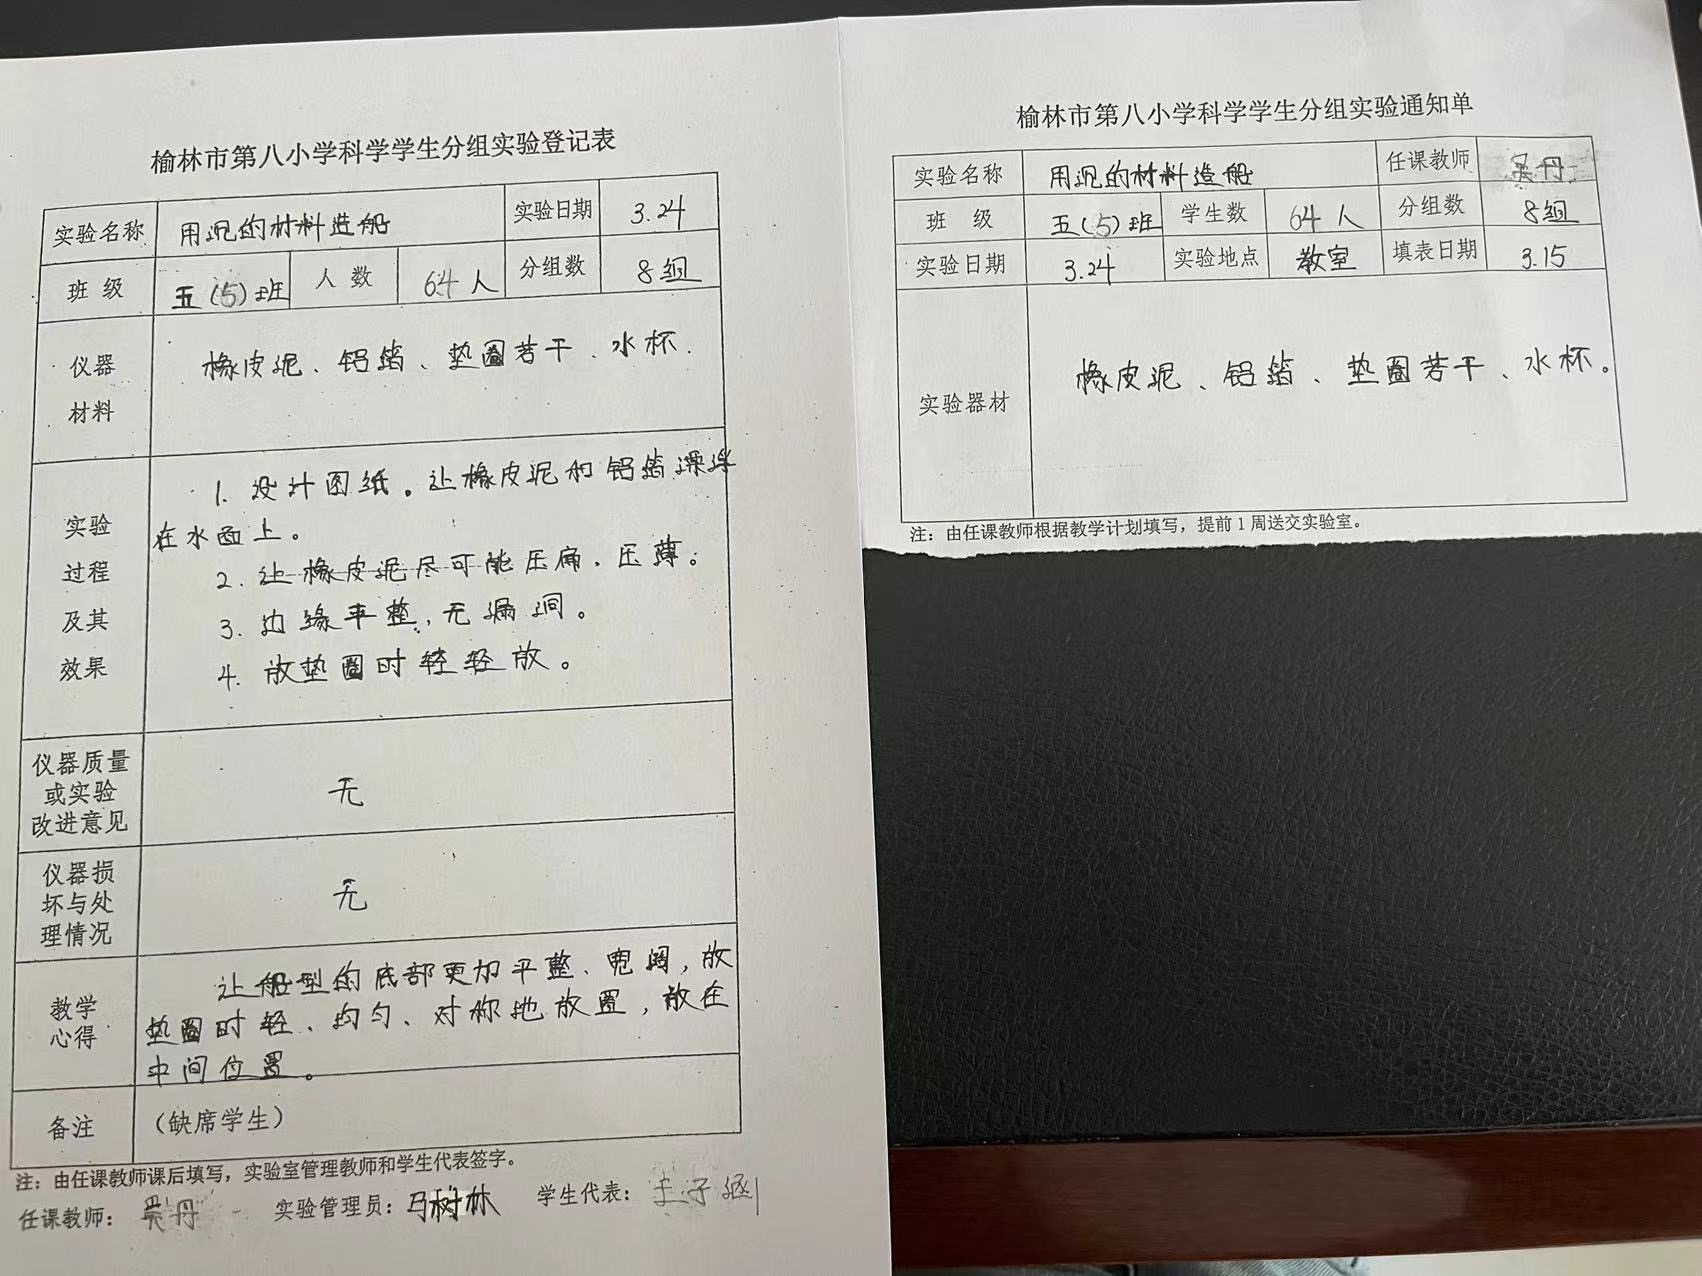 榆林市第八小学科学学生分组实验登记表
实验名称 用现的材料造船 实验日期 3.24
班 级 五(5)班 人 数 64人 分组数 8组
仪器
材料
橡皮泥、铝箔、垫圈若干、水杯.
实验
过程
及其
效果
1. 设计图纸。让橡皮泥和铝箔漂浮
在水面上。
2. 让橡皮泥尽可能压扁,压薄。
3. 边缘平整,无漏洞。
4. 放垫圈时轻轻放。
仪器质量
或实验
改进意见
无
仪器损
坏与处
理情况
无
教学
心得
让船型的底部更加平整、宽阔,放
垫圈时轻、均匀、对称地放置,放在
中间位置。
备注 (缺席学生)
注:由任课教师课后填写,实验室管理教师和学生代表签字。
任课教师: 吴丹 实验管理员:马树林 学生代表: 王子涵
榆林市第八小学科学学生分组实验通知单
实验名称 用现的材料造船 任课教师 吴丹
班 级 五(5)班 学生数 64人 分组数 8组
实验日期 3.24 实验地点 教室 填表日期 3.15
实验器材 橡皮泥、铝箔、垫圈若干、水杯。
注:由任课教师根据教学计划填写,提前1周送交实验室。